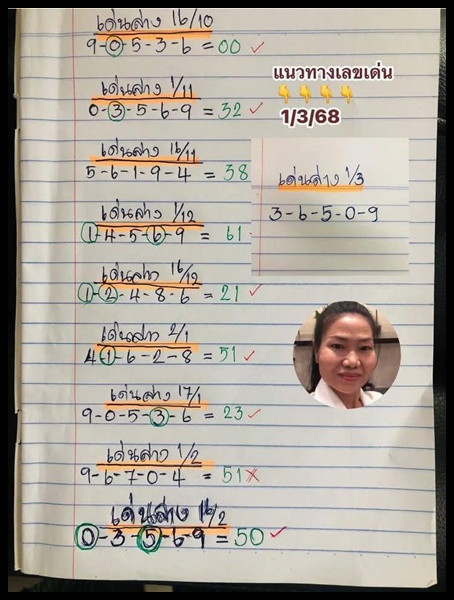 เด่นล่าง 16/10
9-0-5-3-6 = 00 ✓
แนวทางเลขเด่น
👇👇👇👇
1/3/68
เด่นล่าง 1/11
0-3-5-6-9 = 32 ✓
เด่นล่าง 16/11
5-6-1-9-4 = 38
เด่นล่าง 1/3
3-6-5-0-9
เด่นล่าง 1/12
1-4-5-6-9 = 61
เด่นล่าง 16/12
1-2-4-8-6 = 21 ✓
เด่นล่าง 2/1
4-1-6-2-8 = 51 ✓
เด่นล่าง 17/1
9-0-5-3-6 = 23 ✓
เด่นล่าง 1/2
9-6-7-0-4 = 51 ✗
เด่นล่าง 16/2
0-3-5-6-9 = 50 ✓